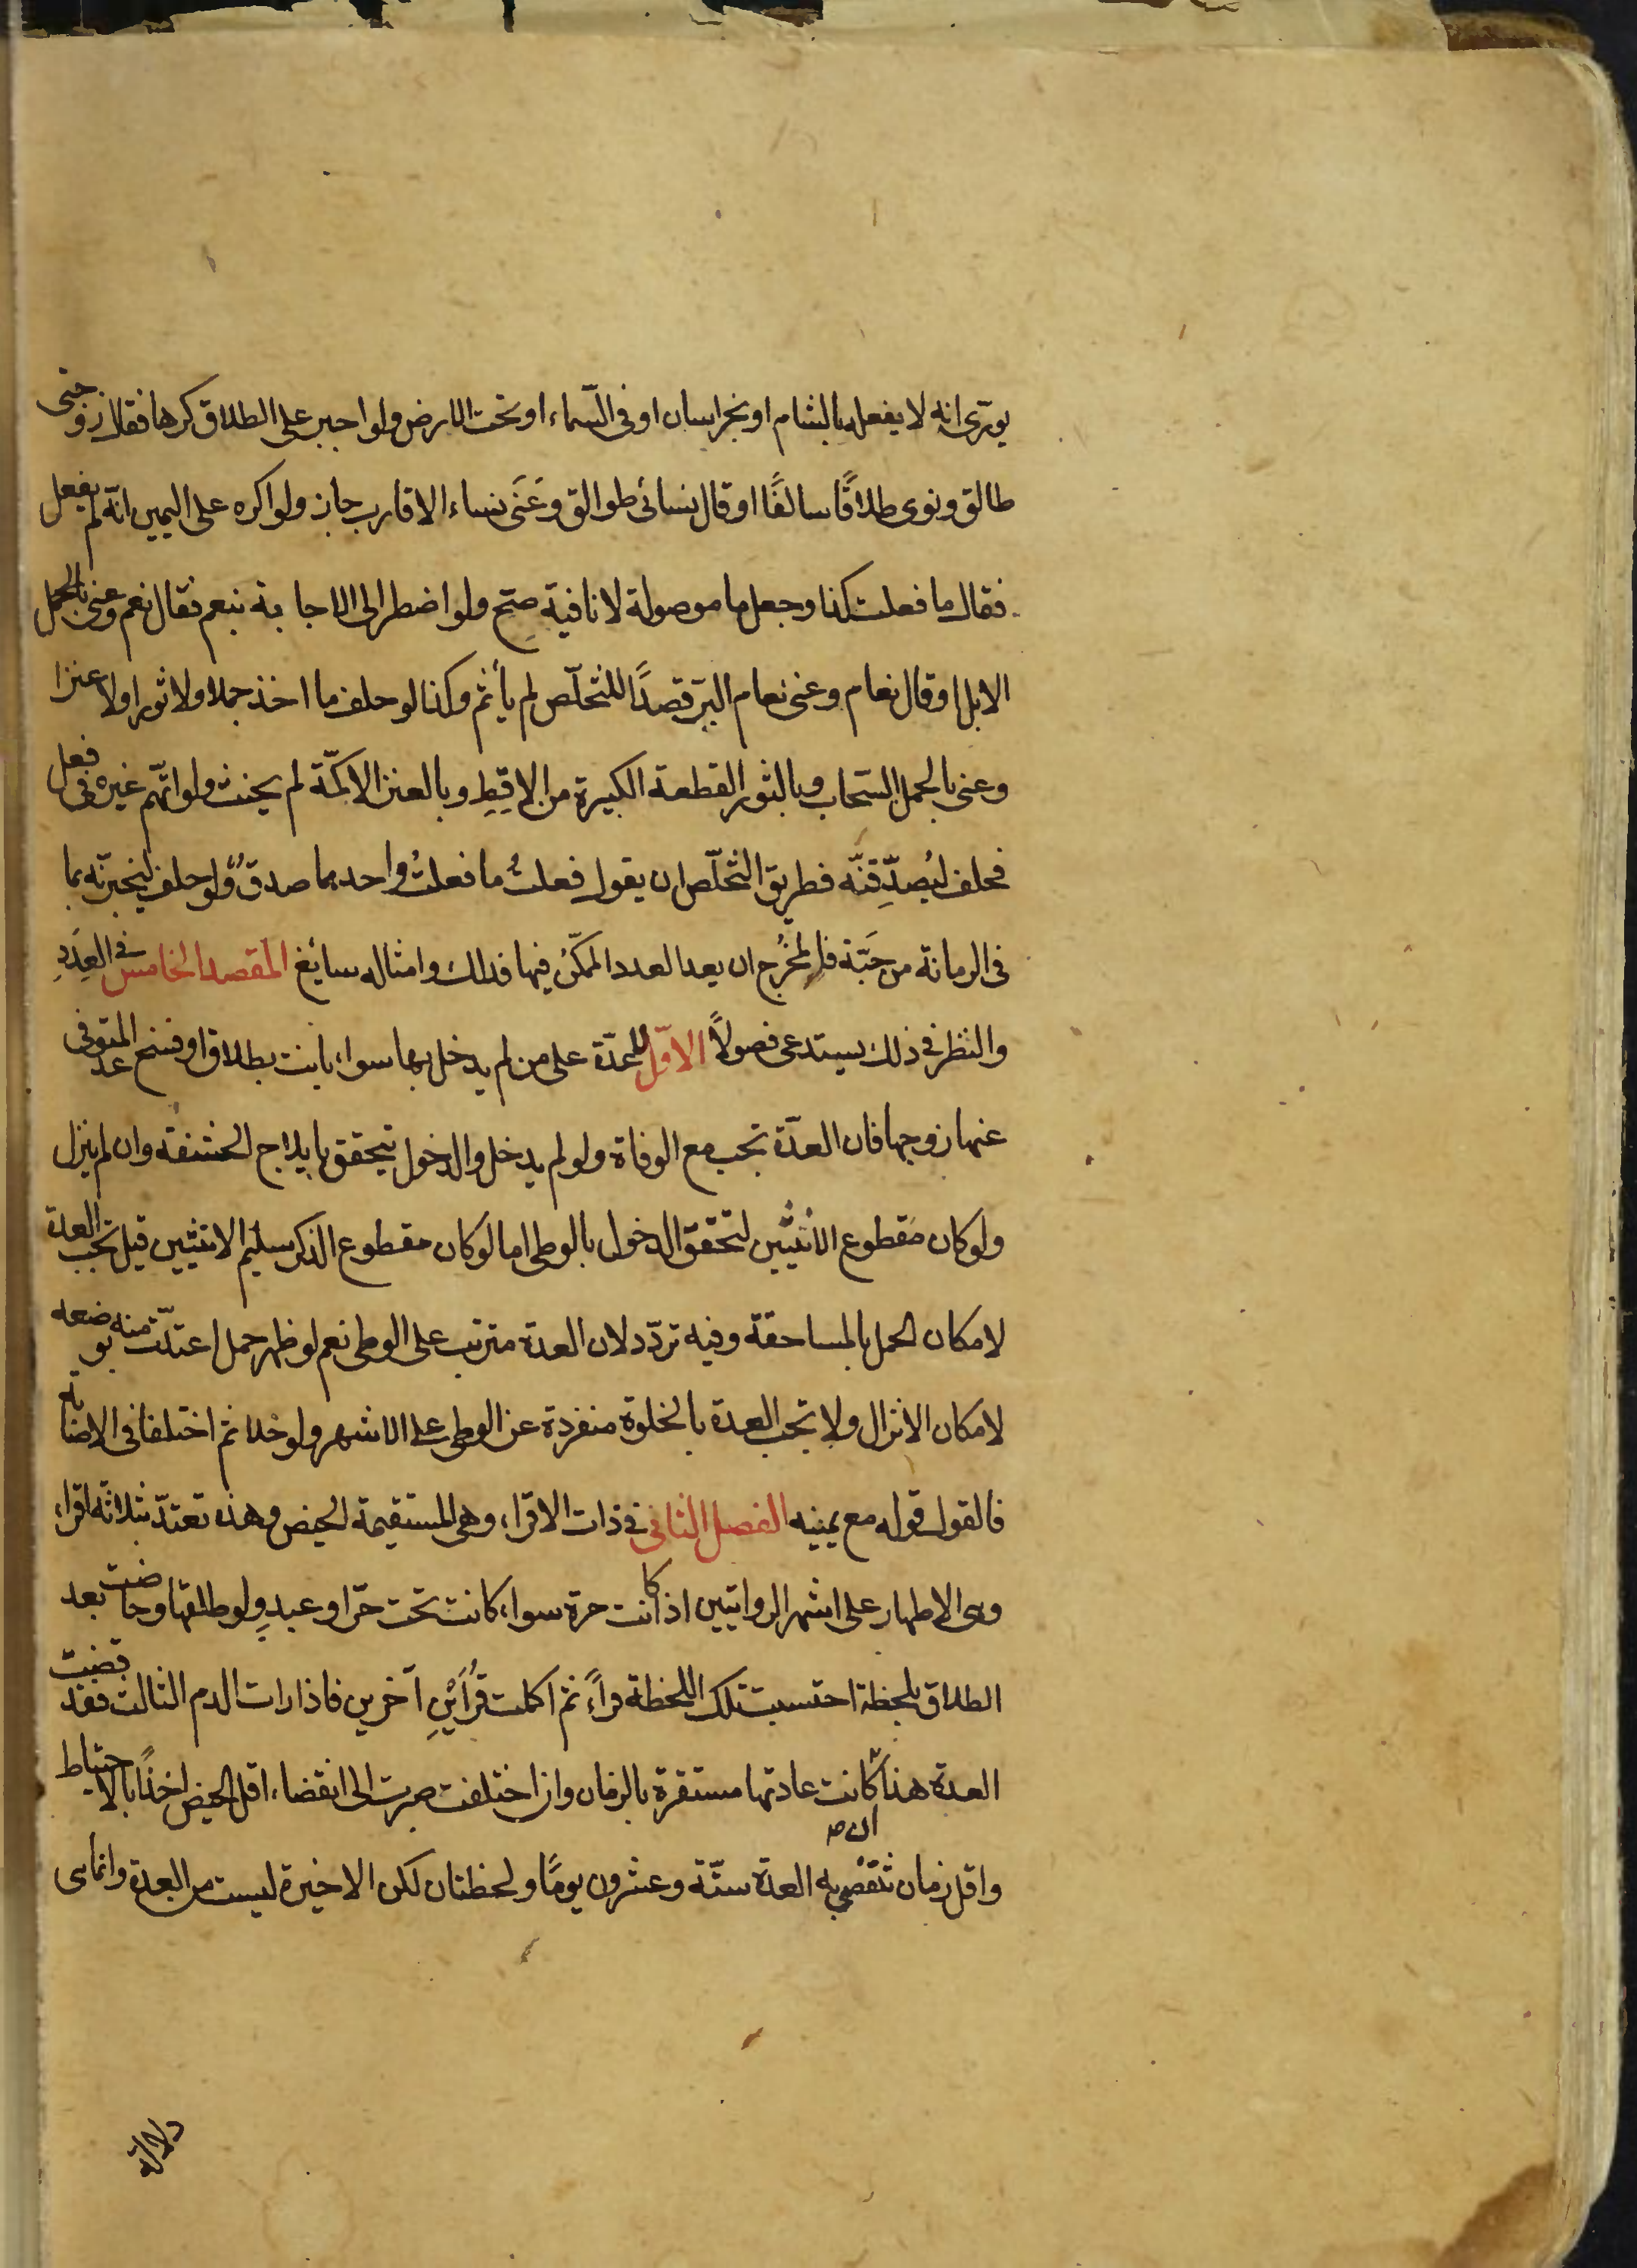 يورّى انه لا يفعله بالشام او بخراسان او فى السّماء او تحت الارض ولو اجبر على الطلاق كرها فقال زوجتى
طالق ونوى طلاقًا سالفًا او قال نسائى طوالق وَعَنَى نساء الاقارب جاز ولو اكره على اليمين انّه لم يفعل
فقال ما فعلت كذا وجعل ما موصولة لا نافية صحّ ولو اضطر الى الاجابة بنعم فقال نعم وعنى بالجمل
الابل او قال نعام وعنى نعام البرّ قصدًا للتخلّص لم يأثم وكذا لو حلف ما اخذ جملا ولا ثورا ولا عنزا
وعنى بالجمل السّحاب وبالثور القطعة الكبيرة من الاقِطِ وبالعنز الاكمّة لم يحنث ولو اتّهم غيره فى فعل
فحلف ليُصدِّقنّه فطريق التخلّص ان يقول فعلتُ ما فعلتُ واحدىهما صدقٌ ولو حلف ليخبرنّه بما
فى الرمانة من حَبّة فالمخْرج ان يعد العدد الممكنُ فيها فذلك وامثاله سائغ المقصد الخامس فى العِدَدِ
والنظر فى ذلك يستدعى فصولًا الاوّل لا عدّة على من لم يدخل بها سواء بانت بطلاق او فسخ عدا المتوفى
عنها زوجها فان العدّة تجب مع الوفاة ولو لم يدخل والدخول يتحقق بايلاج الحشفة وان لم ينزل
ولو كان مقطوع الانثيين لتحقق الدخول بالوطى اما لو كان مقطوع الذكر سليم الانثيين قيل تجب العدة
لامكان الحمل بالمساحقة وفيه تردّد لان العدة مترتب على الوطى نعم لو ظهر حمل اعتدّت منه بوضعه
لامكان الانزال ولا تجب العدة بالخلوة منفردة عن الوطى على الاشهر ولو خلا ثم اختلفا فى الاصابة
فالقول قوله مع يمينه الفصل الثانى فى ذات الاقراء وهى المستقيمة الحيض وهذه تعتدّ بثلاثة اقراء
وهى الاطهار على اشهر الروايتين اذا كانت حرة سواء كانت تحت حرّ او عبدٍ ولو طلقها وحاضت بعد
الطلاق بلحظة احتسبت تلك اللحظة قراءً ثم اكملت قُرأَيْنِ آخرين فاذا رات الدم الثالث فقد قضت
العدة هذا كانت عادتها مستقرة بالزمان وان اختلفت صبرت الى انقضاء اقل الحيض اخذًا بالاحتياط
ان صح
واقل زمان تنقضى به العدة ستّة وعشرون يومًا ولحظتان لكن الاخيرة ليست من العدة وانما هى
دلالة